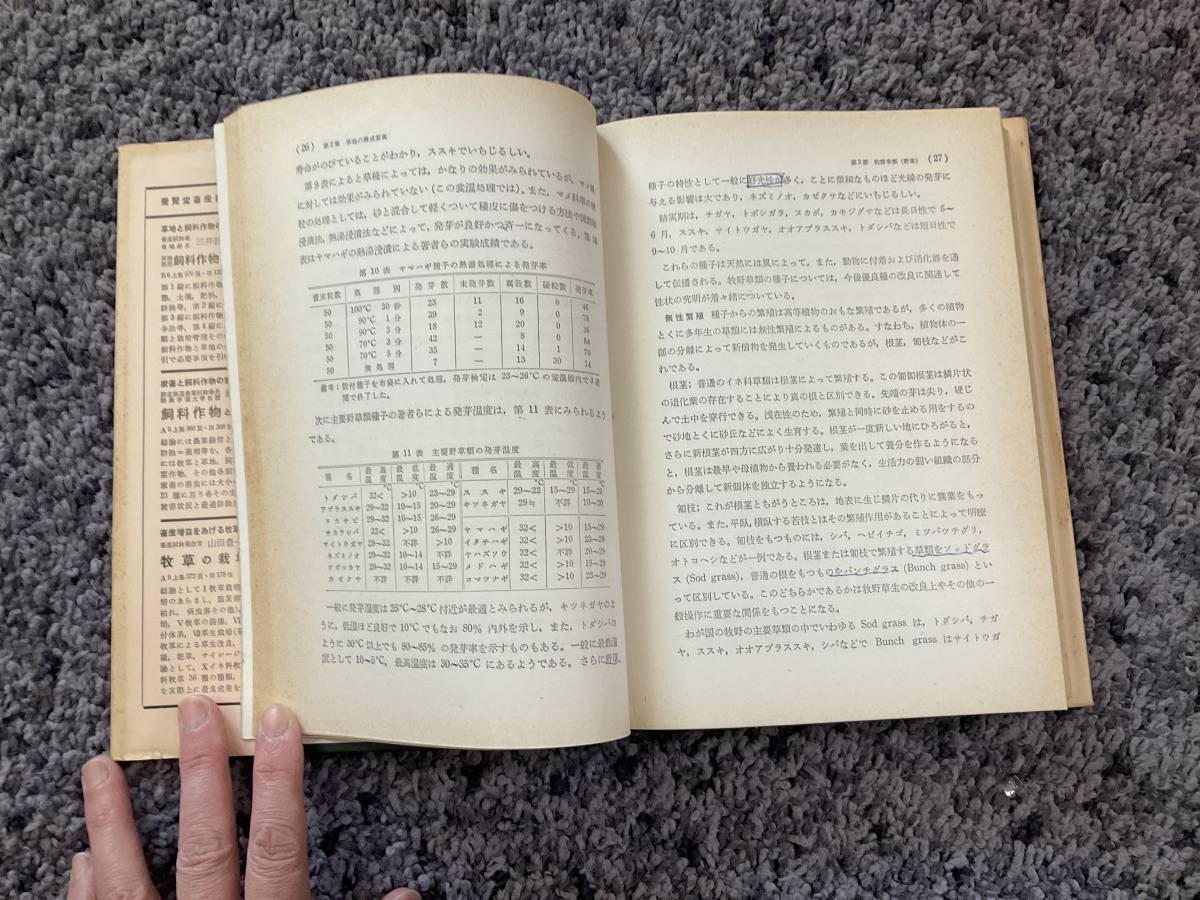 養賢堂畜産
草地と飼料作物の
三井
飼料作物
第1編に
類, 土壌, 肥料,
防除等, 第2編に
第3編に飼料作物
各法等, 第4編に
類と栽培管理その
飼料作物と草地の
引で必要事項を引
家畜と飼料作物の
飼料作物と
総論には農業経営と
防除=薬剤等を, 各
には牧草と草地, 飼
葉作物, その他各飼
家畜の害虫には大小
21種に亘り各その生
被害状況と最適防除
畜産増益をあげる牧草
山田豊一
牧草の栽
A5上製372頁・図178版
総論としてI牧草栽培
結れ, 病虫害その他)
培, V牧草の混播, VI
付体系, VII草生栽培
牧草による草生改良,
蔵, 花草, サイレージ
論として, Xイネ科牧
料牧草36種の種類,
を実際上に最良成果を
(26) 第2章 草地の構成要素
寿命がのびていることがわかり, ススキでいちじるしい。
第9表によると草種によっては, かなりの効果がみられているが, マメ科
に対しては効果がみられていない(この変温処理では)。また, マメ科類の硬
粒の処理としては, 砂と混合して軽くついて種皮に傷をつける方法や
浸漬法, 熱湯浸漬法などによって, 発芽が良好かつ斉一になってくる。第10
表はヤマハギの熱湯浸漬による著者らの実験成績である。
第10表 ヤマハギ種子の熱湯処理による発芽率
置床粒数 処理別 発芽数 未発芽数 腐敗数 硬粒数 発芽率
50 100°C 30秒 23 11 16 0 46
50 90°C 1分 39 2 9 0 78
50 90°C 3分 18 12 20 0 36
50 70°C 3分 42 — 8 0 84
50 70°C 5分 35 — 14 1 70
50 無処理 7 — 13 30 14
備考: 粒付種子を布袋に入れて処理, 発芽検定は23~26°Cの定温器内で3週
間で終了した。
次に主要野草類種子の著者らによる発芽温度は, 第11表にみられるよう
である。
第11表 主要野草類の発芽温度
種名 最高温度 最低温度 最適温度 種名 最高温度 最低温度 最適温度
°C °C °C °C °C °C
トダシバ 32< >10 23~29 ススキ 29~32 15~29 15~29
アブラススキ 29~32 10~15 20~29 キツネガヤ 29≒ 不詳 10~20
ヌカキビ 29~32 10~15 26~29
チカラシバ 32< >10 26~29 ヤマハギ 32< >10 15~29
サイトウガヤ 29~32 不詳 >10 イタチハギ 32< >10 23~29
ネズミノオ 29~32 10~14 不詳 ヤハズソウ 32< 不詳 20~29
オガルカヤ 29~32 10~14 15~29 メドハギ 32< >10 15~29
カゼクサ 不詳 不詳 不詳 コマツナギ 32< >10 23~29
一般に発芽温度は25°C~28°C付近が最適とみられるが, キツネガヤのよ
うに, 低温ほど良好で10°Cでもなお80%内外を示し, また, トダシバの
ように30°C以上でも80~85%の発芽率を示すものもある。一般に最低温
度として10~5°C, 最高温度は30~35°Cにあるようである。さらに野草
第3節 牧野草類(野草) (27)
種子の特性として一般に好光性が多く, ことに微細なものほど光線の発芽に
与える影響は大であり, ネズミノオ, カゼクサなどにいちじるしい。
結実期は, チガヤ, トボシガラ, スカボ, カモジグサなどは長日性で5~
6月, ススキ, サイトウガヤ, オオアブラススキ, トダシバなどは短日性で
9~10月である。
これらの種子は天然には風によって, また, 動物に付着および消化器を通
して伝播される。牧野草類の種子については, 今後優良種の改良に関連して
性状の究明が着々緒についている。
無性繁殖 種子からの繁殖は高等植物のおもな繁殖であるが, 多くの植物
とくに多年生の草類には無性繁殖によるものがある。すなわち, 植物体の一
部の分離によって新植物を発生していくものであるが, 根茎, 匐枝などがこ
れである。
根茎; 普通のイネ科草類は根茎によって繁殖する。この匍匐根茎は鱗片状
の退化葉の存在することにより真の根と区別できる。先端の芽は尖り, 硬じ
んで土中を穿行できる。浅在性のため, 繁殖と同時に砂を止める用をするの
で砂地とくに砂丘などによく生育する。根茎が一度新しい地にひろがると,
さらに新根茎が四方に広がり十分発達し, 葉を出して養分を作るようになる
と, 根茎は最早や母植物から養われる必要がなく, 生活力の弱い組織の部分
から分離して新個体を独立するようになる。
匐枝; これが根茎とちがうところは, 地表に生じ鱗片の代りに簇葉をもっ
ている。また, 平臥, 横臥する若枝とはその繁殖作用があることによって明瞭
に区別できる。匐枝をもつものには, シバ, ヘビイチゴ, ミツバツチグリ,
オトコヘシなどが一例である。根茎または匐枝で繁殖する草類をソッドグラ
ス (Sod grass), 普通の根をもつものをバンチグラス (Bunch grass) とい
って区別している。このどちらかであるかは牧野草生の改良上やその他の一
般操作に重要な関係をもつことになる。
わが国の牧野の主要草類の中でいわゆる Sod grass は, トダシバ, チガ
ヤ, ススキ, オオアブラススキ, シバなどで Bunch grass はサイトウガ